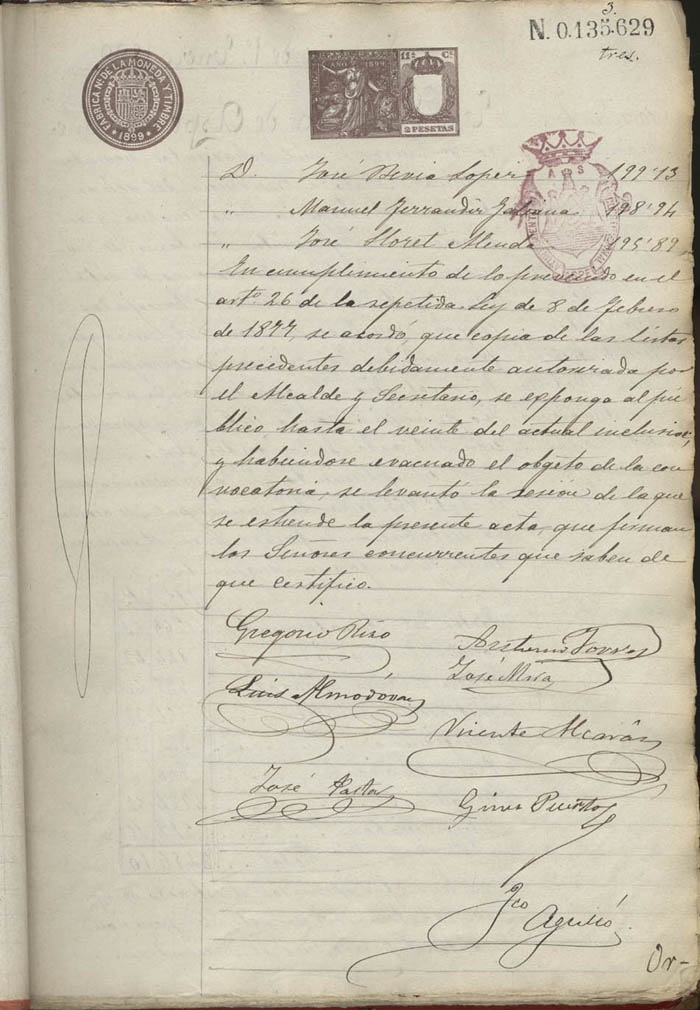 3.
N. 0.135.629
tres.
FABRICA NL. DE LA MONEDA Y TIMBRE
1899
AÑO 1899
11ª Cª
2 PESETAS
D. José Devia Loper 199'13
" Manuel Ferrandiz Galiana 198'94
" José Lloret Mende 195'89
En cumplimiento de lo prevenido en el
artº 26 de la repetida Ley de 8 de Febrero
de 1877, se acordó, que copia de las listas
precedentes debidamente autorizada por
el Alcalde y Secretario, se exponga al pú
blico hasta el veinte del actual inclusive,
y habiendose evacuado el objeto de la con
vocatoria, se levantó la sesion de la que
se estiende la presente acta, que firman
los Señores concurrentes que saben de
que certifico.
Gregorio Riso
Arsturo Torres
José Mira
Luis Almodovar
Vicente Alcaráz
José Pastor
Gines Puerto
Fco Agulló
Or-